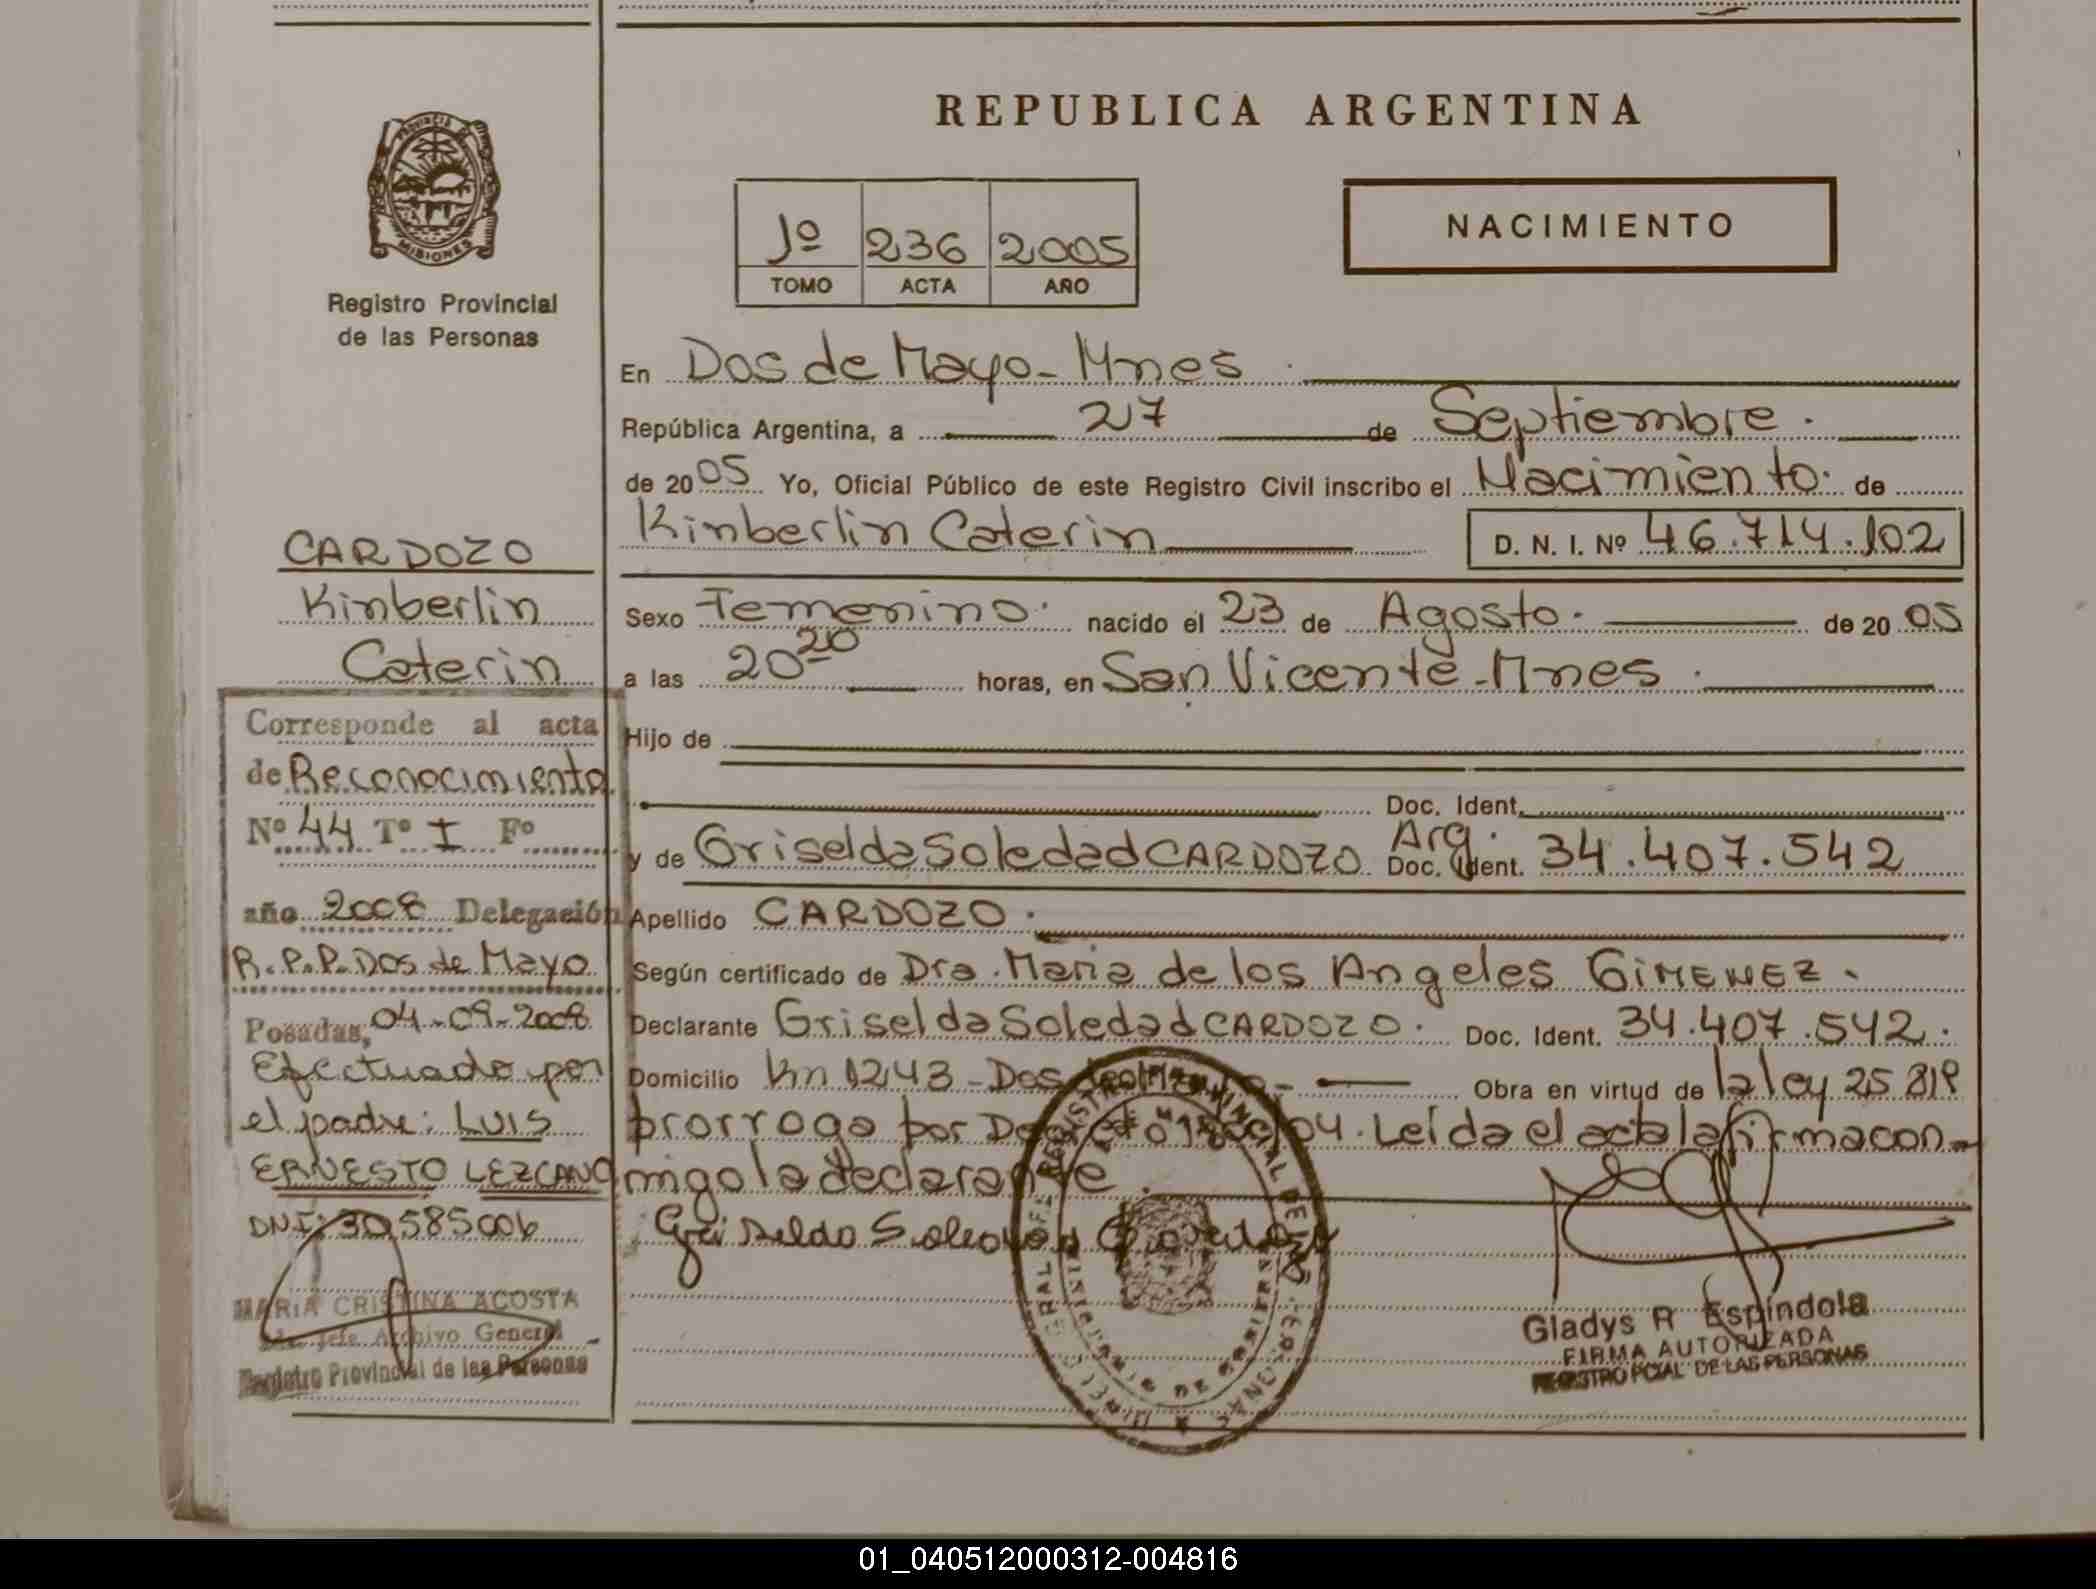 PROVINCIA DE
MISIONES
Registro Provincial
de las Personas
CARDOZO
Kinberlin
Caterin
Corresponde al acta
de Reconocimiento
Nº 44 Tº I Fº
año 2008 Delegación
R.P.P. Dos de Mayo
Posadas, 04-09-2008
Efectuado por
el padre: LUIS
ERNESTO LEZCANO
DNI: 30.585006
MARIA CRISTINA ACOSTA
Jefe Archivo General
Registro Provincial de las Personas
REPUBLICA ARGENTINA
1º 236 2005
TOMO ACTA AÑO
NACIMIENTO
En Dos de Mayo - Mnes
República Argentina, a 27 de Septiembre.
de 2005 Yo, Oficial Público de este Registro Civil inscribo el Nacimiento. de
Kinberlin Caterin D. N. I. Nº 46.714.102
Sexo Femenino. nacido el 23 de Agosto. de 2005
a las 20 20 horas, en San Vicente - Mnes.
Hijo de
Doc. Ident.
y de Griselda Soledad CARDOZO Arg. Doc. Ident. 34.407.542
Apellido CARDOZO.
Según certificado de Dra. Maria de los Angeles GIMENEZ.
Declarante Griselda Soledad CARDOZO. Doc. Ident. 34.407.542.
Domicilio Km 1243 - Dos de Mayo - Obra en virtud de la ley 25 819
prorroga por Decreto /04. Leída el acta la firma con-
migo la declarante.
Griselda Soledad Cardozo
Gladys R Espíndola
FIRMA AUTORIZADA
REGISTRO PCIAL DE LAS PERSONAS
01_040512000312-004816